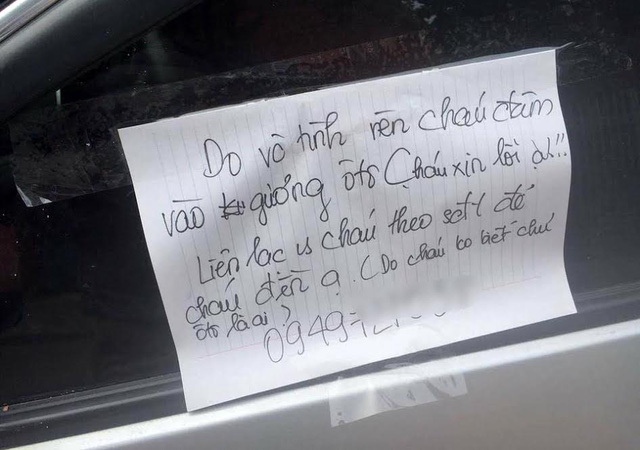 Do vô tình nên cháu đâm
vào gương ôtô Cháu xin lỗi ạ!!
Liên lạc vs cháu theo sđt để
cháu đền ạ. (Do cháu ko biết chủ
ôtô là ai?
0949